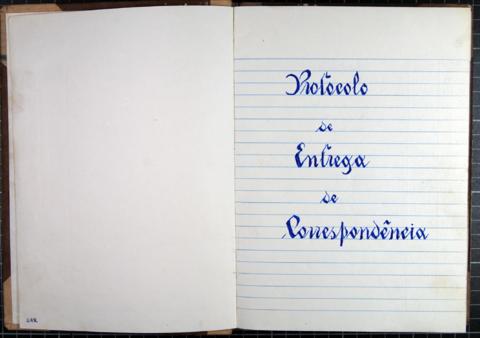 Protócolo
de
Entrega
de
Correspondência